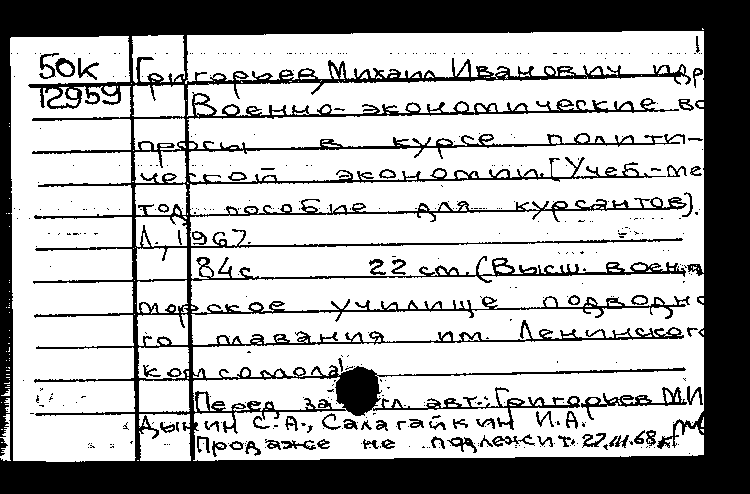 50к
12959
Григорьев, Михаил Иванович и др.
Военно-экономические во
просы в курсе полити-
ческой экономии. [Учеб.-ме
тод. пособие для курсантов].
Л., 1967.
84 с. 22 см. (Высш. военн
морское училище подводно
го плавания им. Ленинского
комсомола)
Перед загл. авт.: Григорьев М.И
Дынин С.А., Салагайкин И.А.
Продаже не подлежит. 27.III.68к